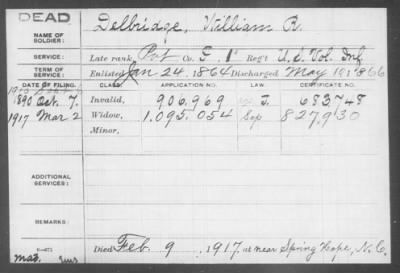 DEAD
NAME OF SOLDIER: Delbridge, William R.
SERVICE: Late rank Pvt Co. G. 1" Reg't U.S. Vol. Inf
TERM OF SERVICE: Enlisted Jan 24. 1864 Discharged May 19 1866
DATE OF FILING. CLASS. APPLICATION NO. LAW. CERTIFICATE NO.
1890 Oct. 7. Invalid, 906,969 J. 683,748
1917 Mar 2 Widow, 1.095.054 Sep 827,930
Minor,
ADDITIONAL SERVICES:
REMARKS:
Died Feb. 9, 1917, at near Spring Hope, N.C.